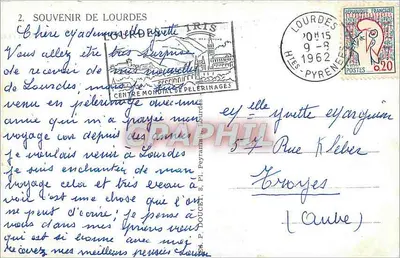 2. SOUVENIR DE LOURDES
Chère Mademoiselle Yvette
Vous allez être très surprise
de recevoir de mes nouvelles
de Lourdes, mais je suis
venu en pèlerinage avec une
amie qui m'a payée mon
voyage car depuis des années
je voulais venir à Lourdes
je suis enchantée de mon
voyage cela et très beau à
voir c'est une chose que l'on
ne peut d'écrire; je pense à
vous dans mes prières vous
qui est si bonne avec moi
recevez mes meilleurs pensées
LOURDES IRIS
CENTRE MONDIAL DE PELERINAGES
LOURDES
15
9-8
1962
Htes-PYRENEES
REPUBLIQUE FRANÇAISE
POSTES
0,20
Melle Yvette Marguin
57 Rue Kléber
Troyes
(Aube)
P. DOUCET
CPAPHIL.COM